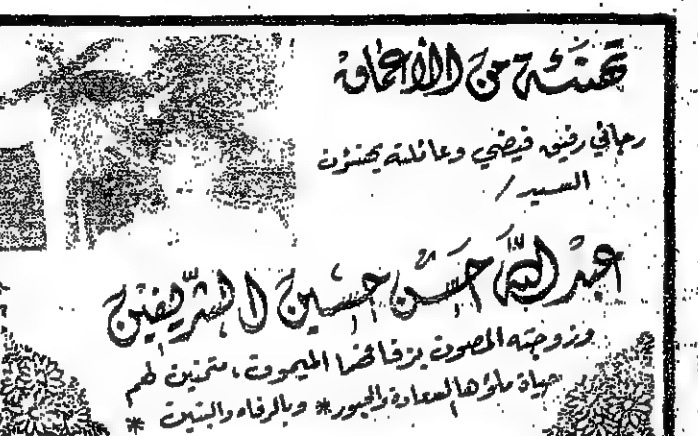 تهنئة من الأعماق
رجائي رفيق فيضي وعائلته يهنئون
السيد /
عبد الله حسن حسين الشريفين
وزوجته المصون بزفافهما الميمون، متمنين لهم
حياة ملؤها السعادة والحبور * وبالرفاه والبنين *